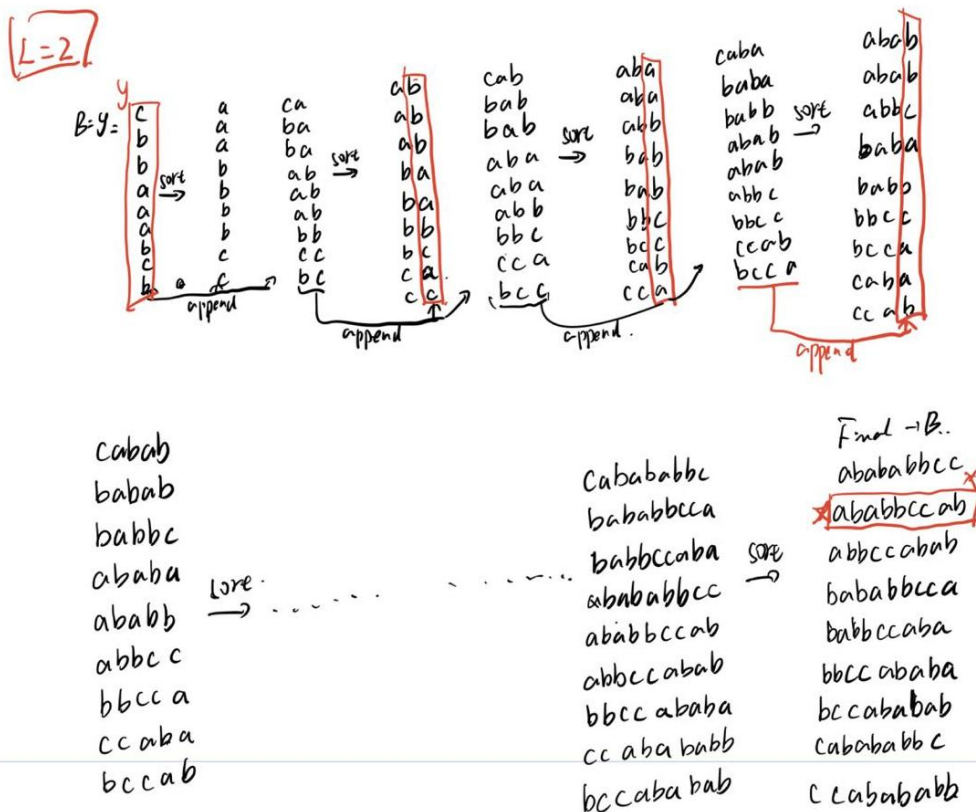 L=2
y
B=y=
c
b
b
a
a
a
b
c
b
sort
a
a
a
b
b
b
b
c
c
append
ca
ba
ba
ab
ab
ab
bb
cc
bc
sort
append
ab
ab
ab
ba
ba
bb
bc
ca
cc
cab
bab
bab
aba
aba
abb
bbc
cca
bcc
sort
append.
aba
aba
abb
bab
bab
bbc
bcc
cab
cca
caba
baba
babb
abab
abab
abbc
bbcc
ccab
bcca
sort
append
abab
abab
abbc
baba
babb
bbcc
bcca
caba
ccab
cabab
babab
babbc
ababa
ababb
abbcc
bbcca
ccaba
bccab
sort.
cabababbc
bababbcca
babbccaba
abababbcc
ababbccab
abbccabab
bbccababa
ccabababb
bccababab
sort
Final → B..
abababbcc
ababbccab
abbccabab
bababbcca
babbccaba
bbccababa
bccababab
cabababbc
ccabababb